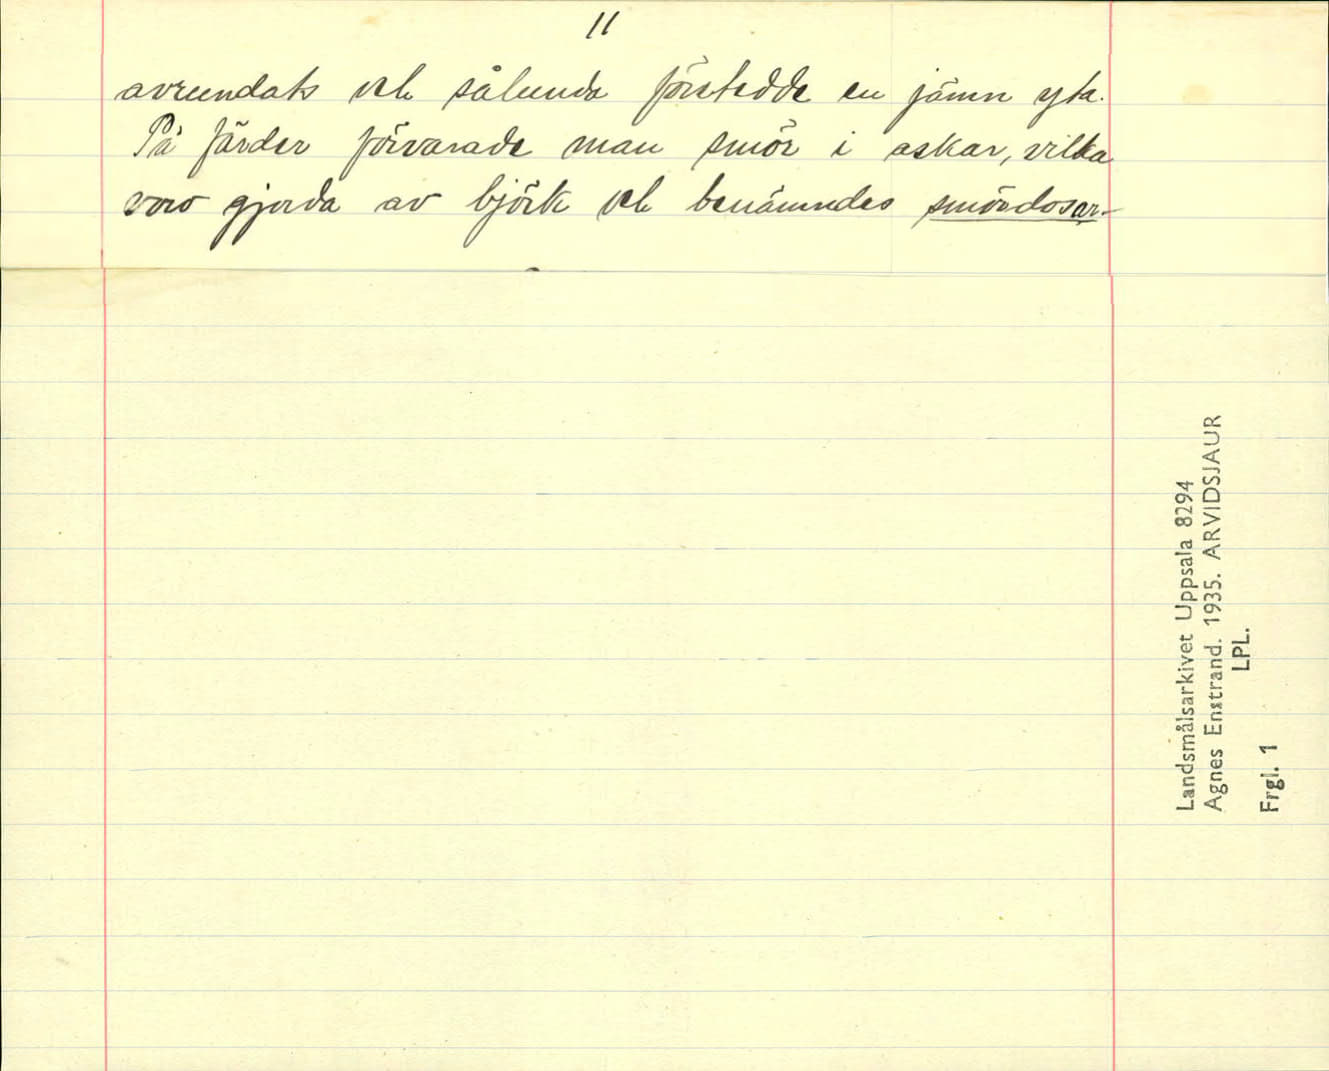 11
avrundats och sålunda företedde en jämn yta.
På färder förvarade man smör i askar, vilka
voro gjorda av björk och benämndes smördosar-
Landsmålsarkivet Uppsala 8294
Agnes Enstrand. 1935. ARVIDSJAUR
LPL.
Frgl. 1